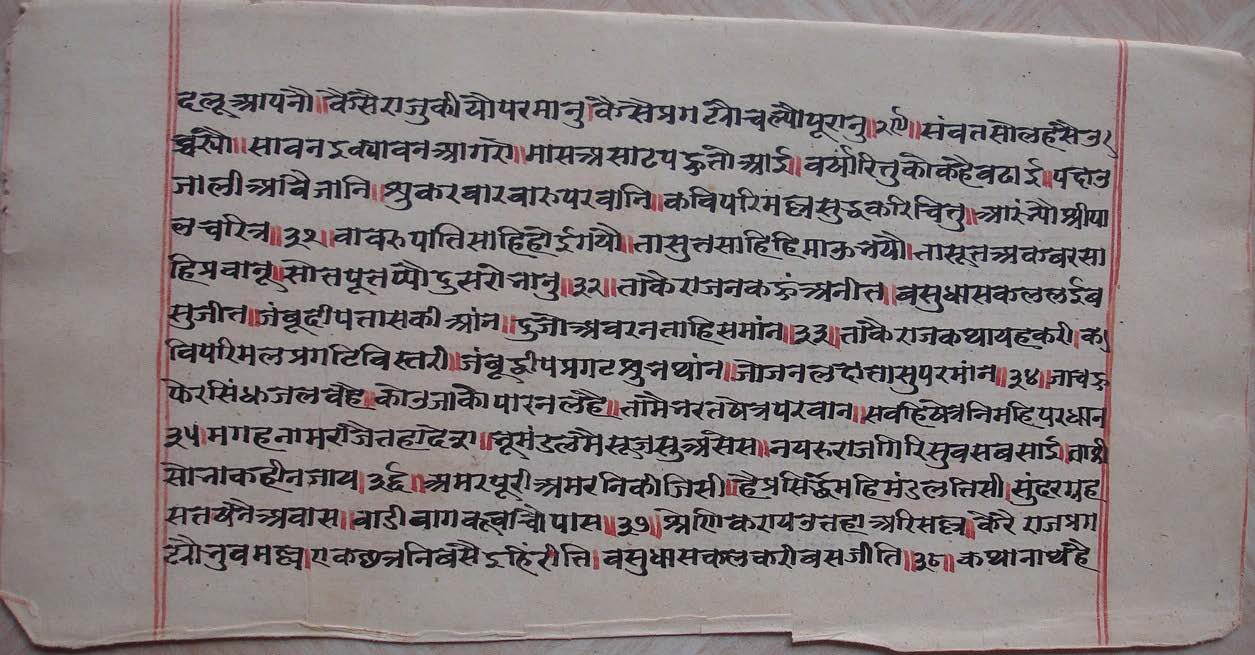 दलू आपनौ॥ कैसै राजु कीयौ परमानु। कैसै प्रगट्यौ चल्यौ पूरानु॥ संवत सोलहसै उ
॥सावन इक्यावन आगरो॥मास असाट पहुतो आई॥वर्षारितु कौ कहै वढाई॥
जाली आंवै जानि॥शुकरवार वारु परवानि॥कवि परिमल्ल सुद्ध करि चितु॥आरंभ्यौ श्रीपा
ल चरित्र॥३१॥वावरु पातिसाहि होई गयौ॥ता सुत साहि हिमाऊ भयौ॥ता सूत अकव्वर सा
हि प्रवानू॥सो तप तप्यौ दुसरो भानु॥३२॥ताकै राज न कहूं अनीत॥वसुधा सकल लई व
सु जीत॥जंबूदीप तास की आंन॥दुजो अवर न ताहि समांन॥३३॥ताकै राज कथा यह करी॥क
वि परिमल प्रगटि विस्तरी॥जंबूदीप प्रगट शुभ थांन॥जोजन लछ तासु परमांन॥३४॥जा चहु
फेर सिंध जल वहै॥कोउ जाको पार न लहै॥तामै भरतषेत्र परवान॥सर्वहि षेत्रनि महि परधान
३५॥मगह नाम राजै तहां देश॥भूमंडल मै सूजसु असेस॥नयरु राजगिरि सुवस वसाई॥ता की
सोभा कही न जाय॥३६॥अमरपूरी अमरनि की जिसी॥है प्रसिद्ध महिमंडल तिसी॥सुंदर ग्रह
सतषनै अवास॥वाडी वाग चौपास॥३७॥श्रेणिक राय उ तहा अरिसल्ल॥करै राज प्रग
ट्यौ भुवमल्ल॥एक छत्र निवसै इहिं रीति॥वसुधा सकल करी वस जीति॥३८॥कथा नाथ है